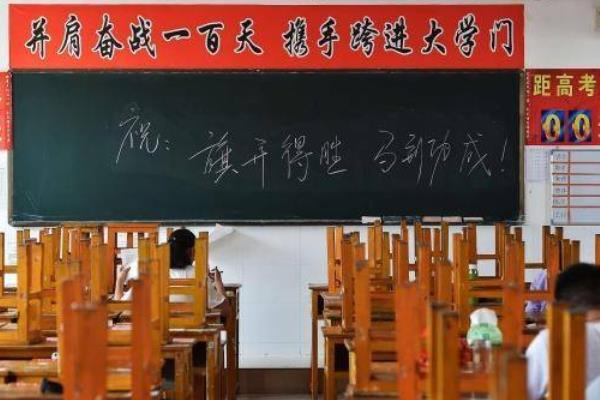 并肩奋战一百天 携手跨进大学门
距高考
00
祝：旗开得胜 马到功成！